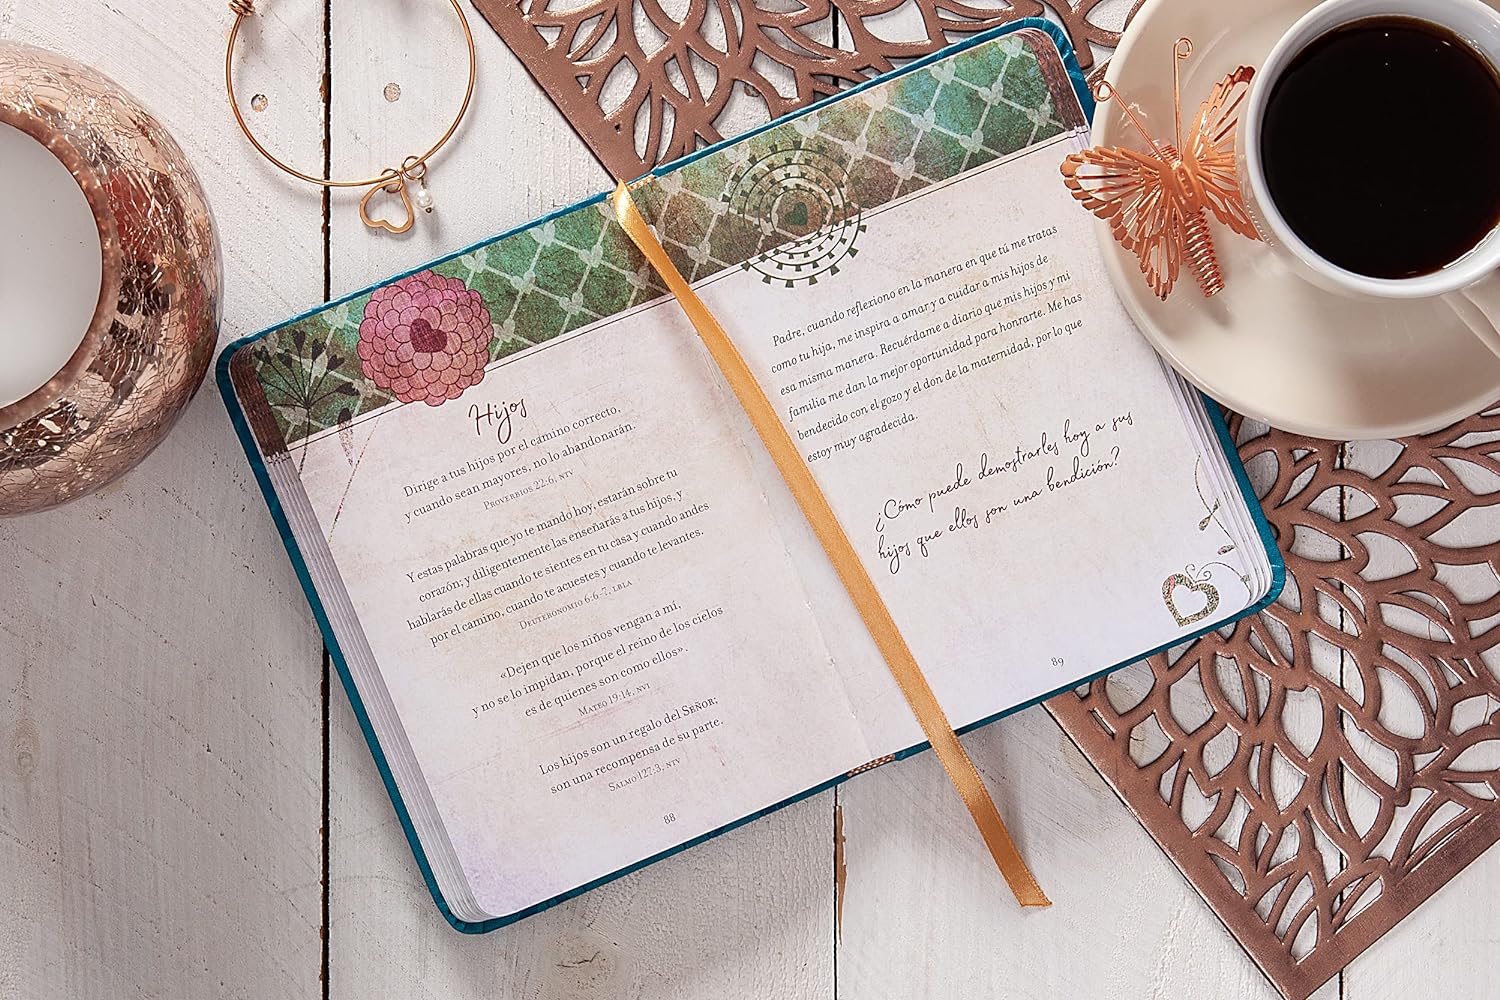 Hijos
Dirige a tus hijos por el camino correcto,
y cuando sean mayores, no lo abandonarán.
Proverbios 22:6, NTV
Y estas palabras que yo te mando hoy, estarán sobre tu
corazón; y diligentemente las enseñarás a tus hijos, y
hablarás de ellas cuando te sientes en tu casa y cuando andes
por el camino, cuando te acuestes y cuando te levantes.
Deuteronomio 6:6-7, LBLA
«Dejen que los niños vengan a mí,
y no se lo impidan, porque el reino de los cielos
es de quienes son como ellos».
Mateo 19:14, NVI
Los hijos son un regalo del Señor;
son una recompensa de su parte.
Salmo 127:3, NTV
88
Padre, cuando reflexiono en la manera en que tú me tratas
como tu hija, me inspira a amar y a cuidar a mis hijos de
esa misma manera. Recuérdame a diario que mis hijos y mi
familia me dan la mejor oportunidad para honrarte. Me has
bendecido con el gozo y el don de la maternidad, por lo que
estoy muy agradecida.
¿Cómo puede demostrarles hoy a sus
hijos que ellos son una bendición?
89